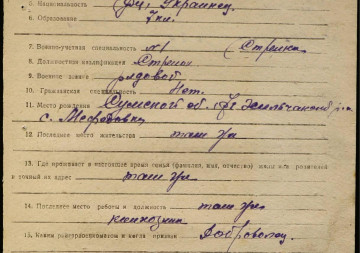 5. Национальность Укр. Украинец
6. Образование 7 кл.
7. Военно-учетная специальность №1 (Стрелк
8. Должностная квалификация Стрелок
9. Военное звание рядовой
10. Гражданская специальность Нет
11. Место рождения Сумской об.
с.
12. Последнее место жительства там же
13. Где проживает в настоящее время семья (фамилия, имя, отчество) жены или родителей
и точный их адрес там же
14. Последнее место работы и должность там же
колхозник
15. Каким райвоенкоматом и когда призван Доброволец